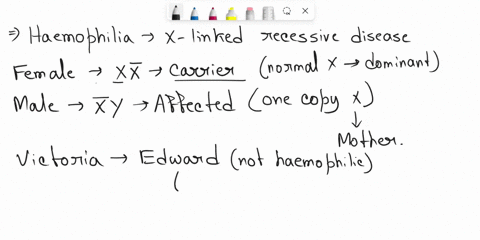 ⇒ Haemophilia → X-linked recessive disease
Female → XX̅ → Carrier (normal X → dominant)
Male → X̅Y → Affected (one copy X)
↓
Mother.
Victoria → Edward (not haemophilic)
(